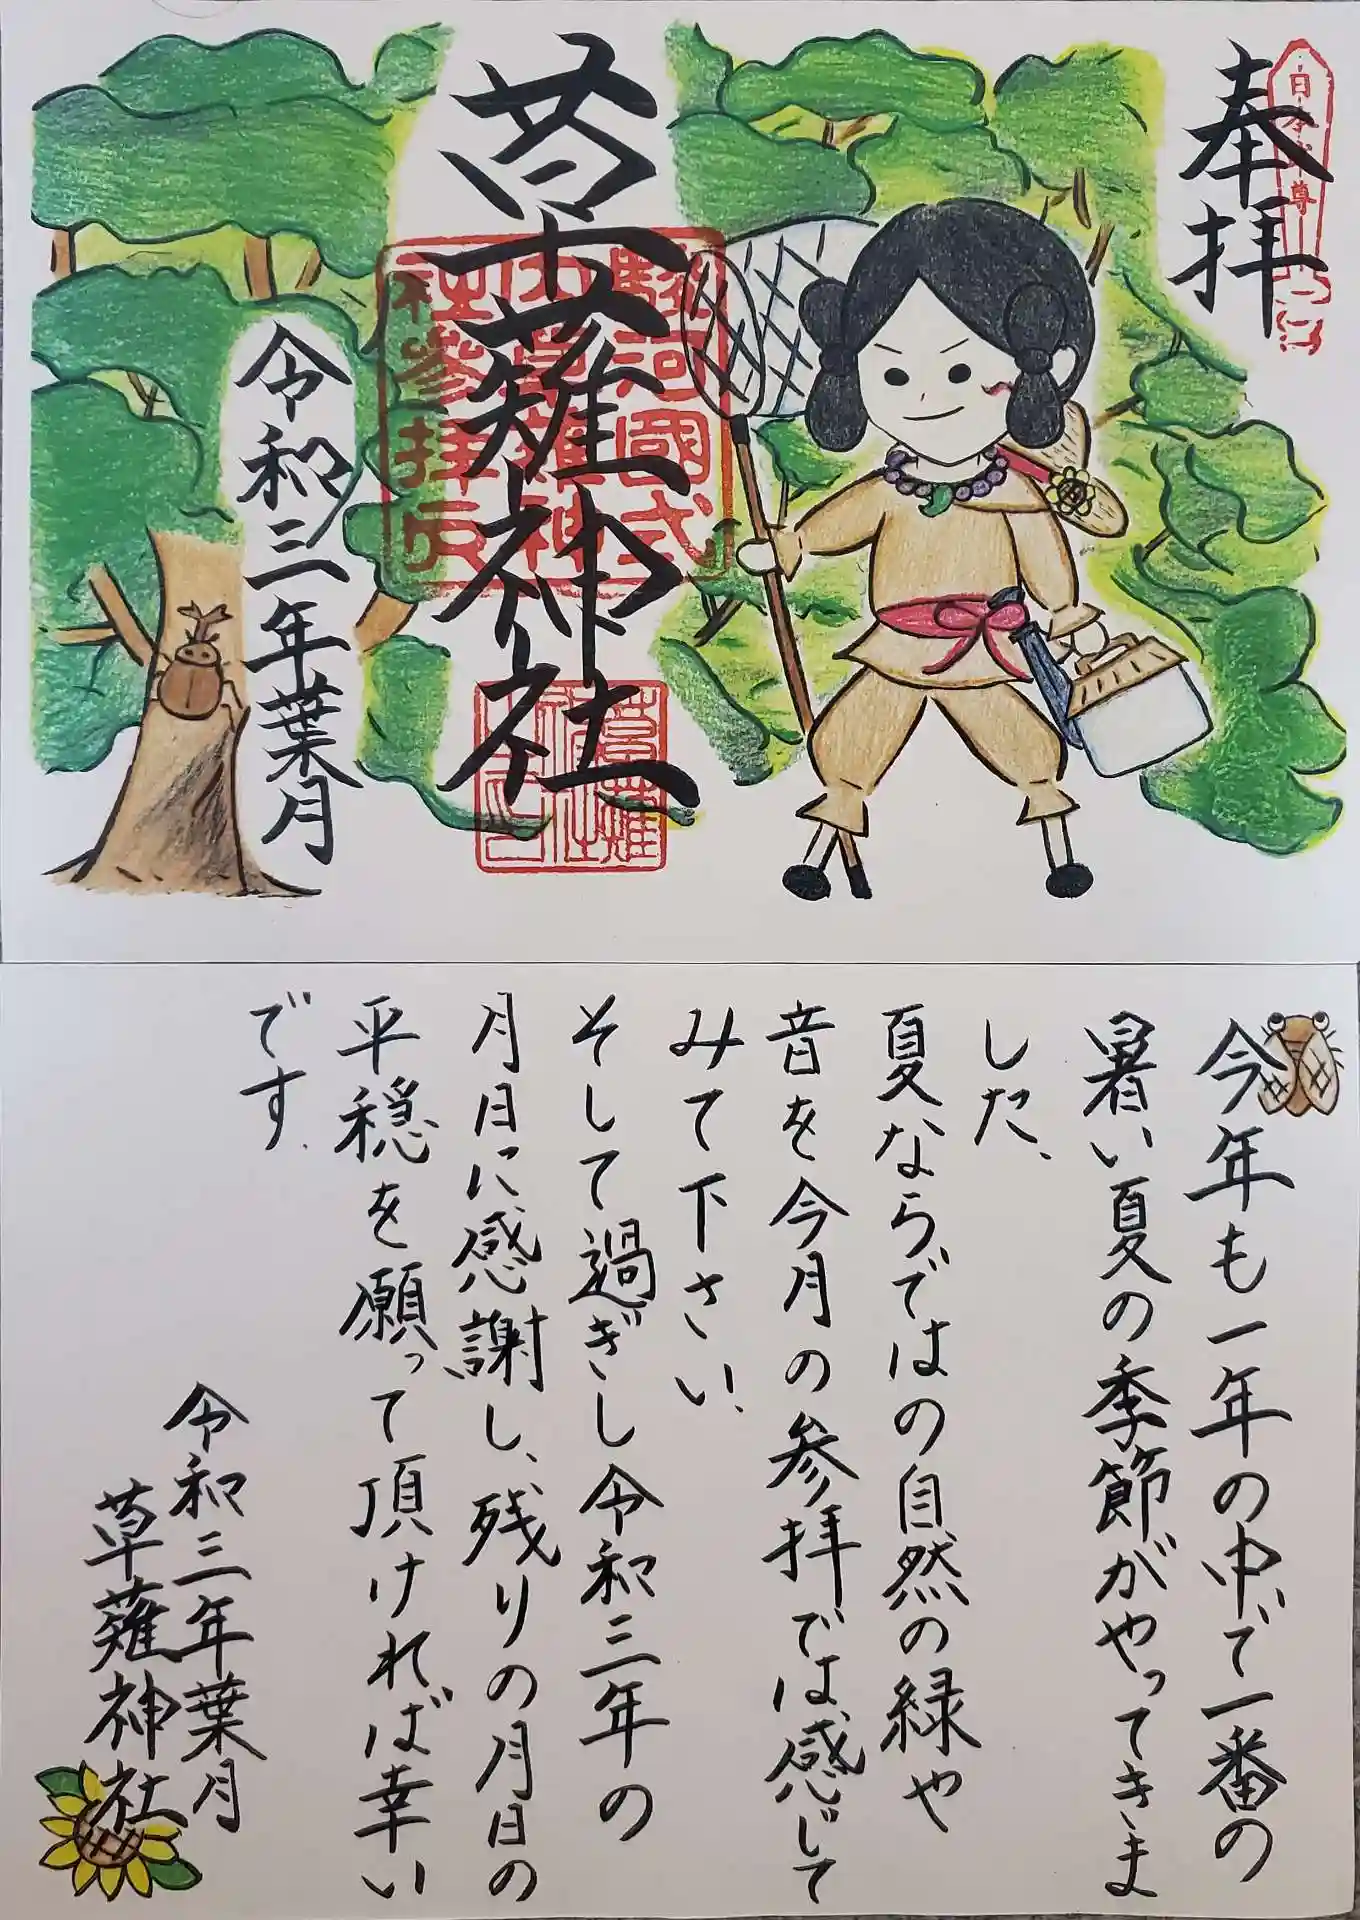 奉拝
日本武尊
草薙神社
駿河國式
内草薙神
社参拝之
令和三年葉月
今年も一年の中で一番の
暑い夏の季節がやってきま
した、
夏ならではの自然の緑や
音を今月の参拝では感じて
みて下さい、
そして過ぎし令和三年の
月日に感謝し、残りの月日の
平穏を願って頂ければ幸い
です、
令和三年葉月
草薙神社